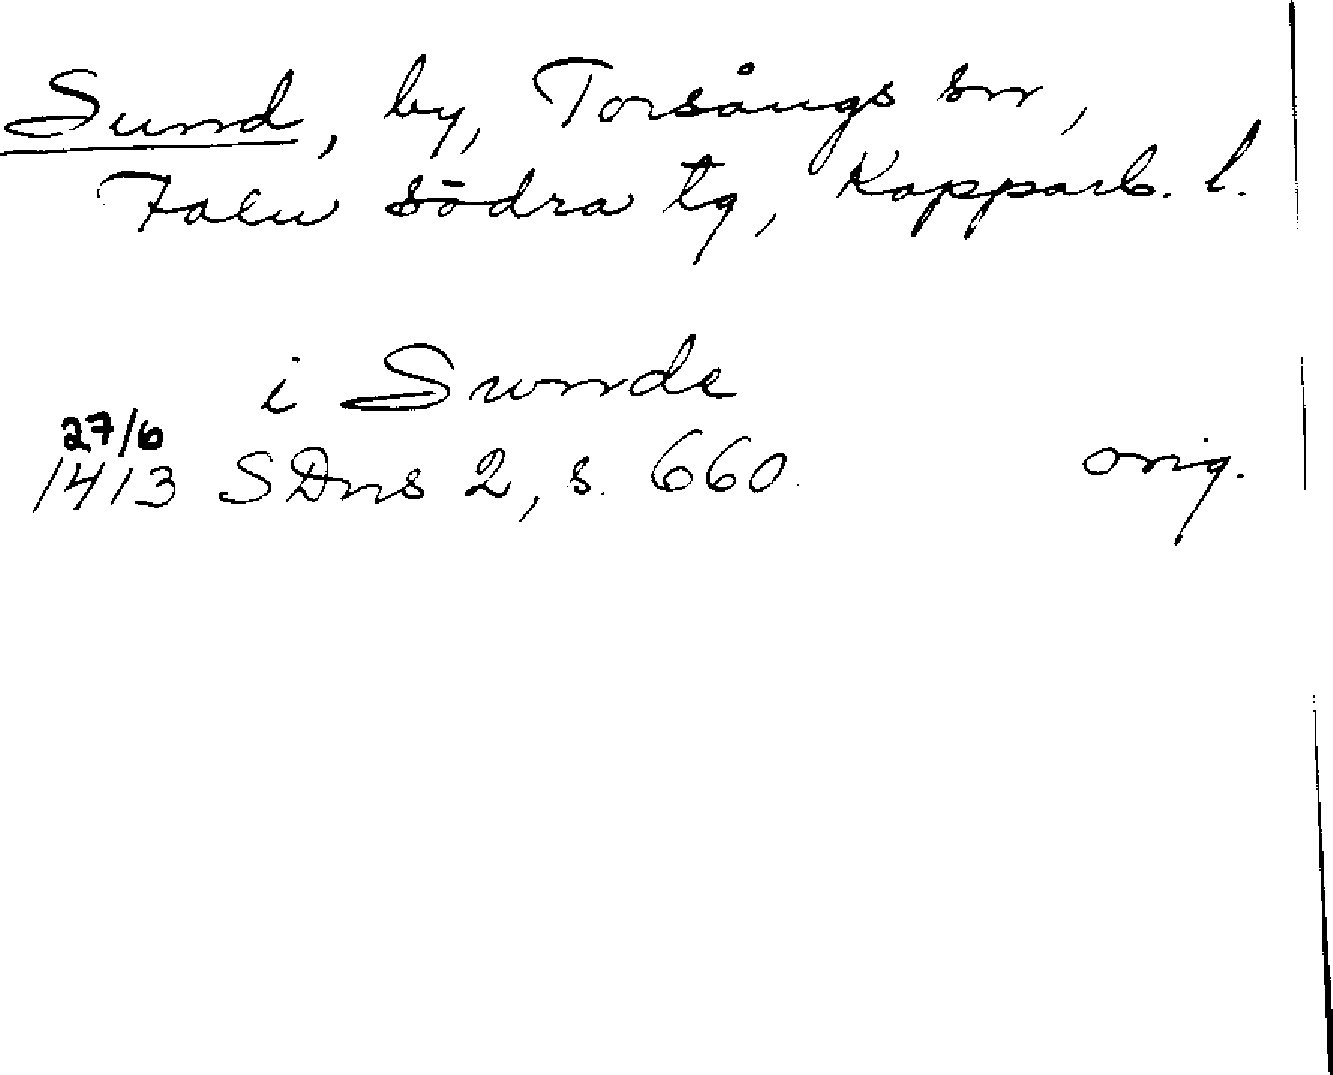 Sund, by, Torsångs sn,
Falu södra tg, Kopparb. l.
i Swnde
27/6
1413 SDns 2, s. 660. orig.